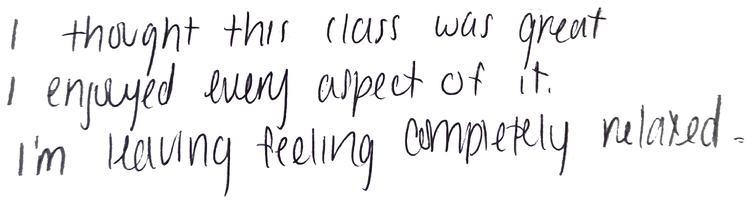 I thought this class was great
I enjoyed every aspect of it.
I'm leaving feeling completely relaxed.